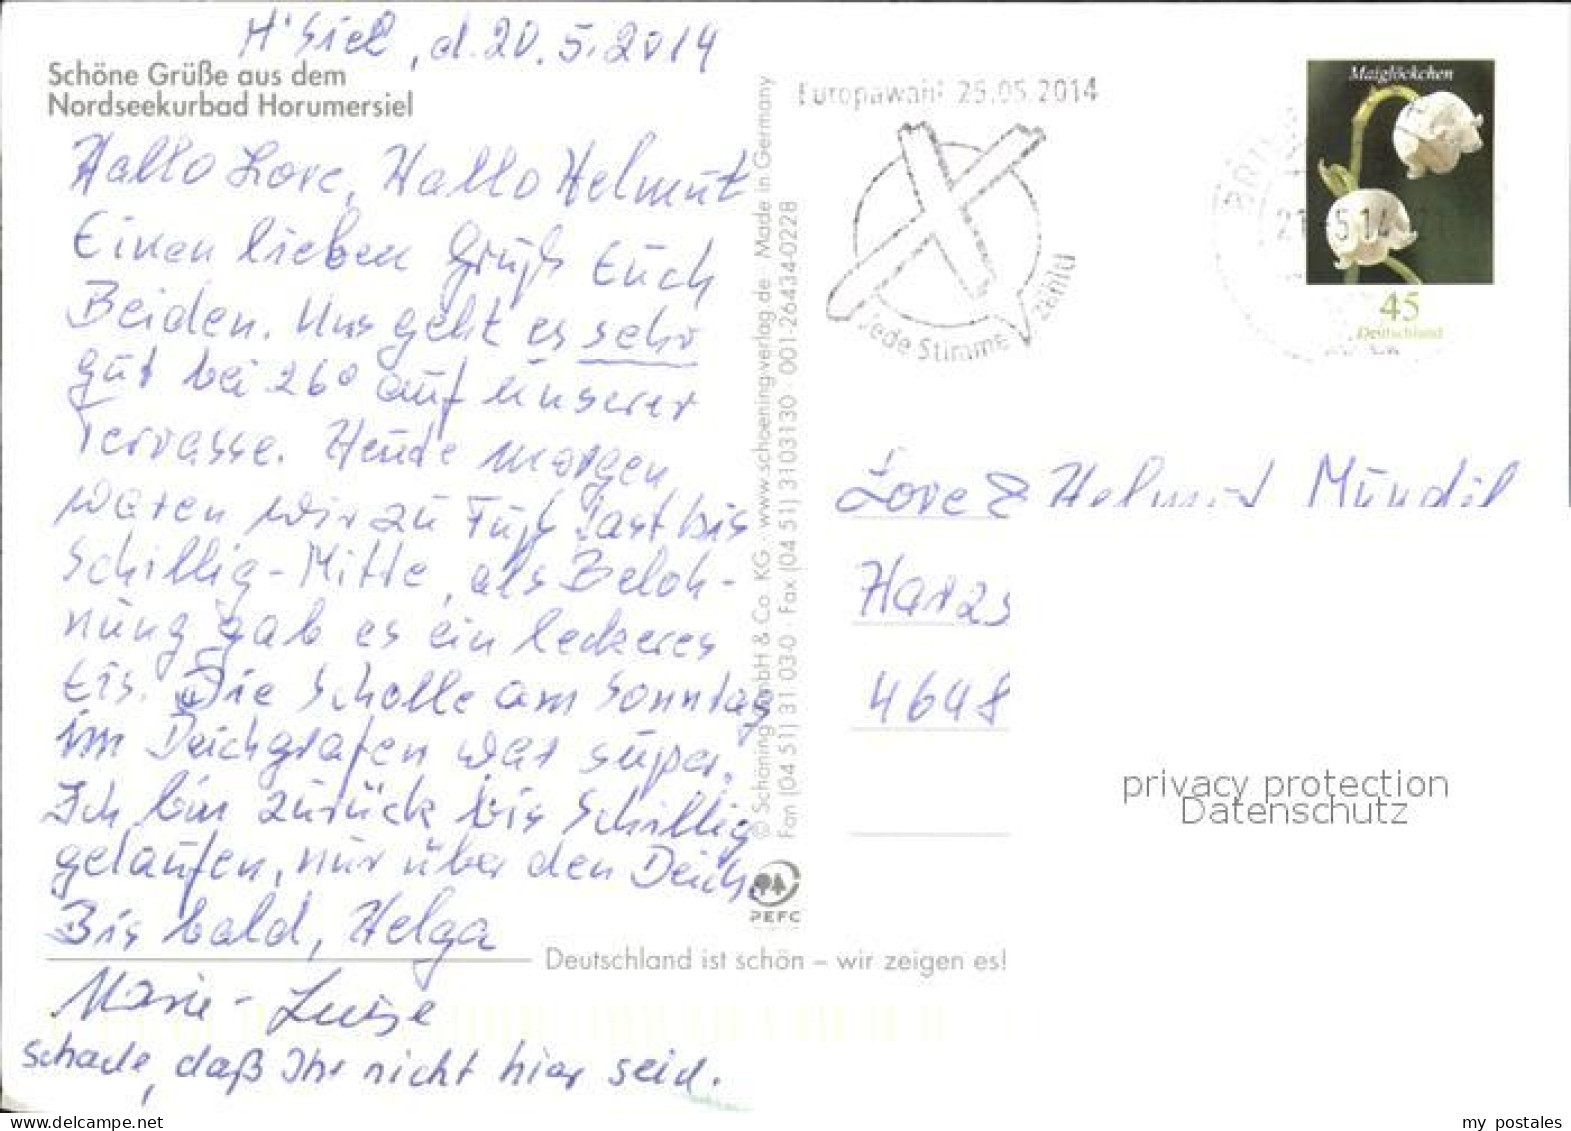 H'Siel, d. 20.5.2014
Schöne Grüße aus dem
Nordseekurbad Horumersiel
Hallo Lore, Hallo Helmut
Einen lieben Gruß Euch
Beiden. Uns geht es sehr
gut bei 26° auf unserer
Terrasse. Heute morgen
waren wir zu Fuß fast bis
Schillig-Mitte, als Beloh-
nung gab es ein leckeres
Eis. Die Scholle am Sonntag
im Deichgrafen war super.
Ich bin zurück bis Schillig
gelaufen, nur über den Deich.
Bis bald, Helga
Marie-Luise
Schade, daß Ihr nicht hier seid.
Deutschland ist schön – wir zeigen es!
© Schöning GmbH & Co. KG · www.schoening-verlag.de · Made in Germany
Fon (04 51) 31 03-0 · Fax (04 51) 3103130 · 001-26434-0228
PEFC
Europawahl 25.05.2014
Jede Stimme zählt!
Maiglöckchen
45
Deutschland
21.5.14
Lore & Helmut Mündil
Harzs
4648
privacy protection
Datenschutz
my postales